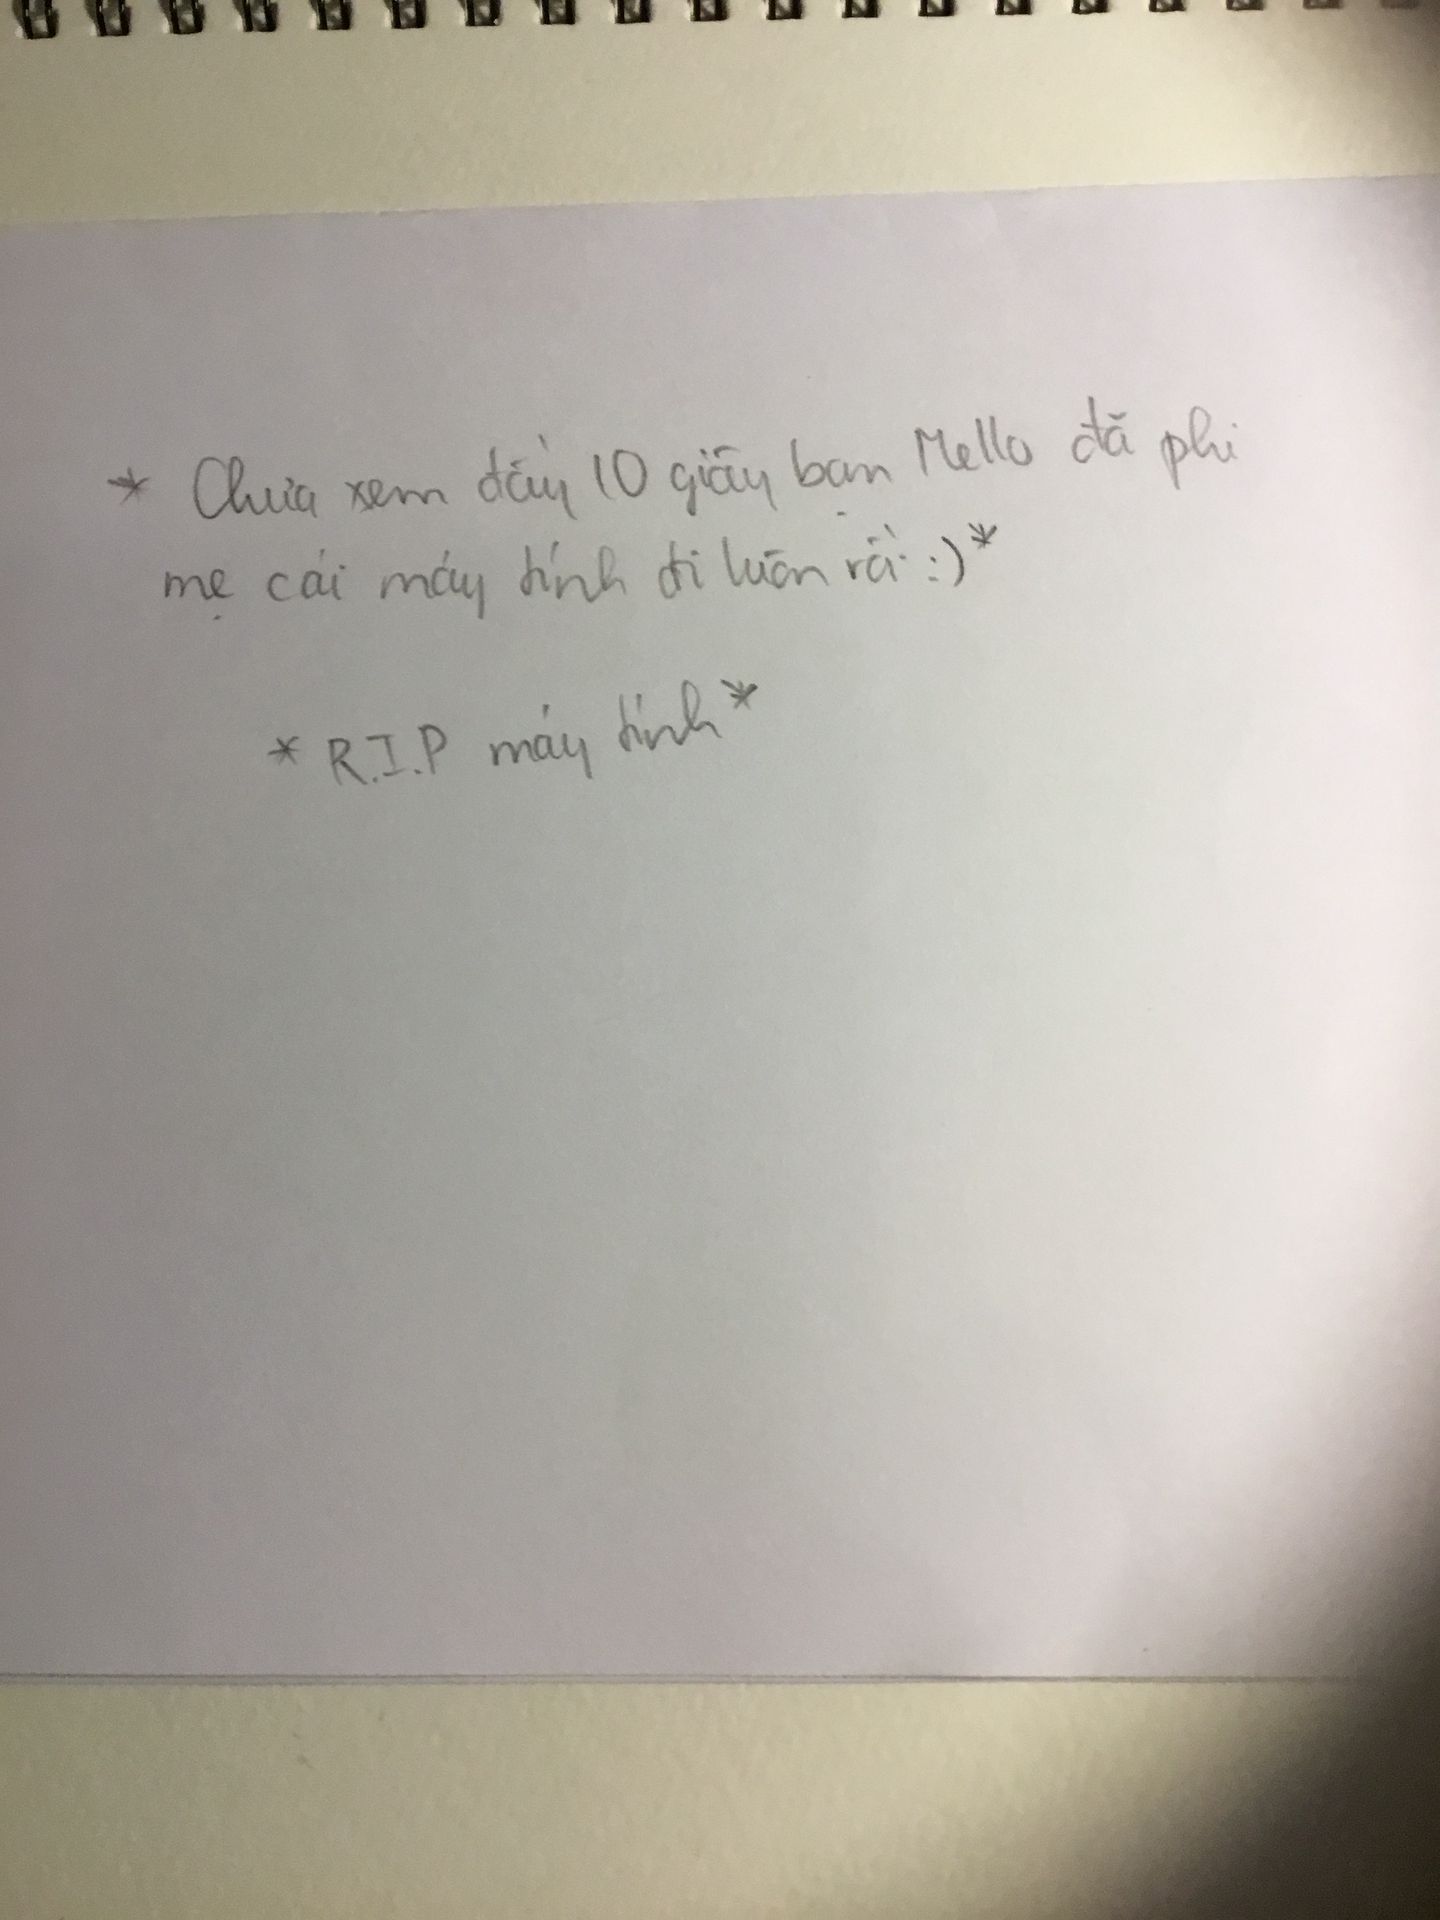 * Chưa xem đầy 10 giây bạn Mello đã phi
mẹ cái máy tính đi luôn rồi :)*
* R.I.P máy tính *